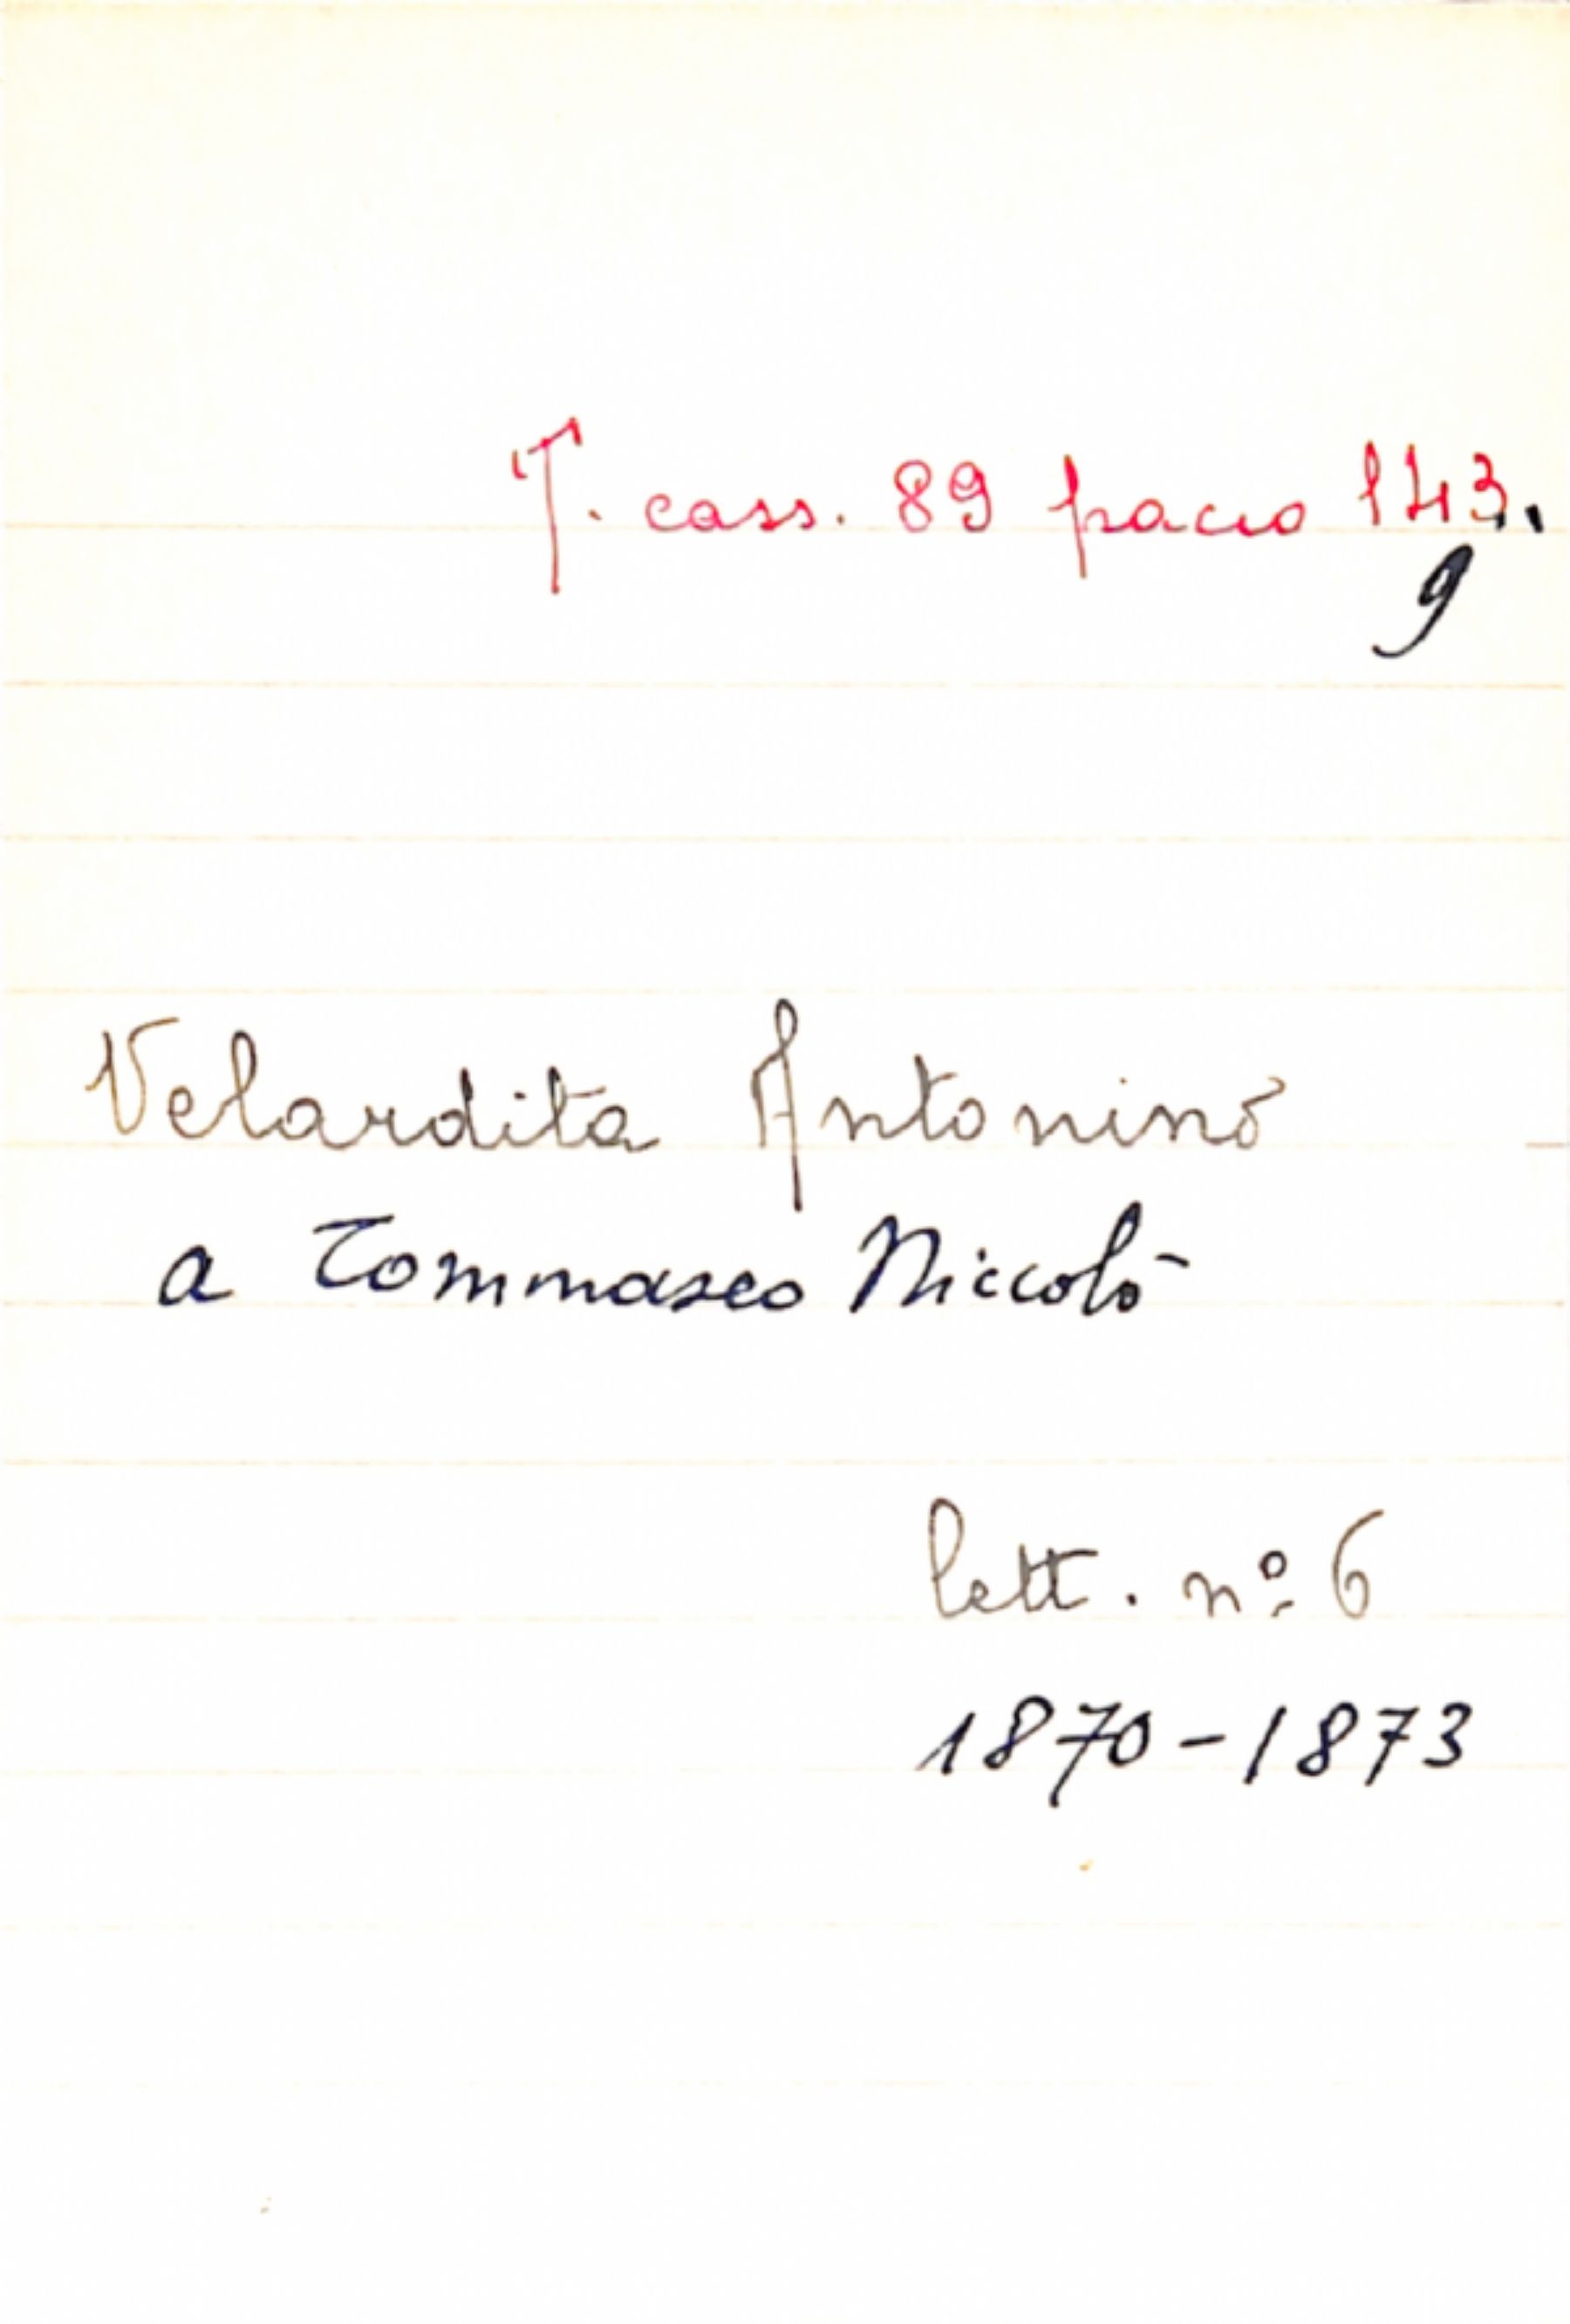 T. cass. 89 pacco 143.
9
Velardita Antonino
a Tommaseo Niccolò
lett. nº 6
1870-1873